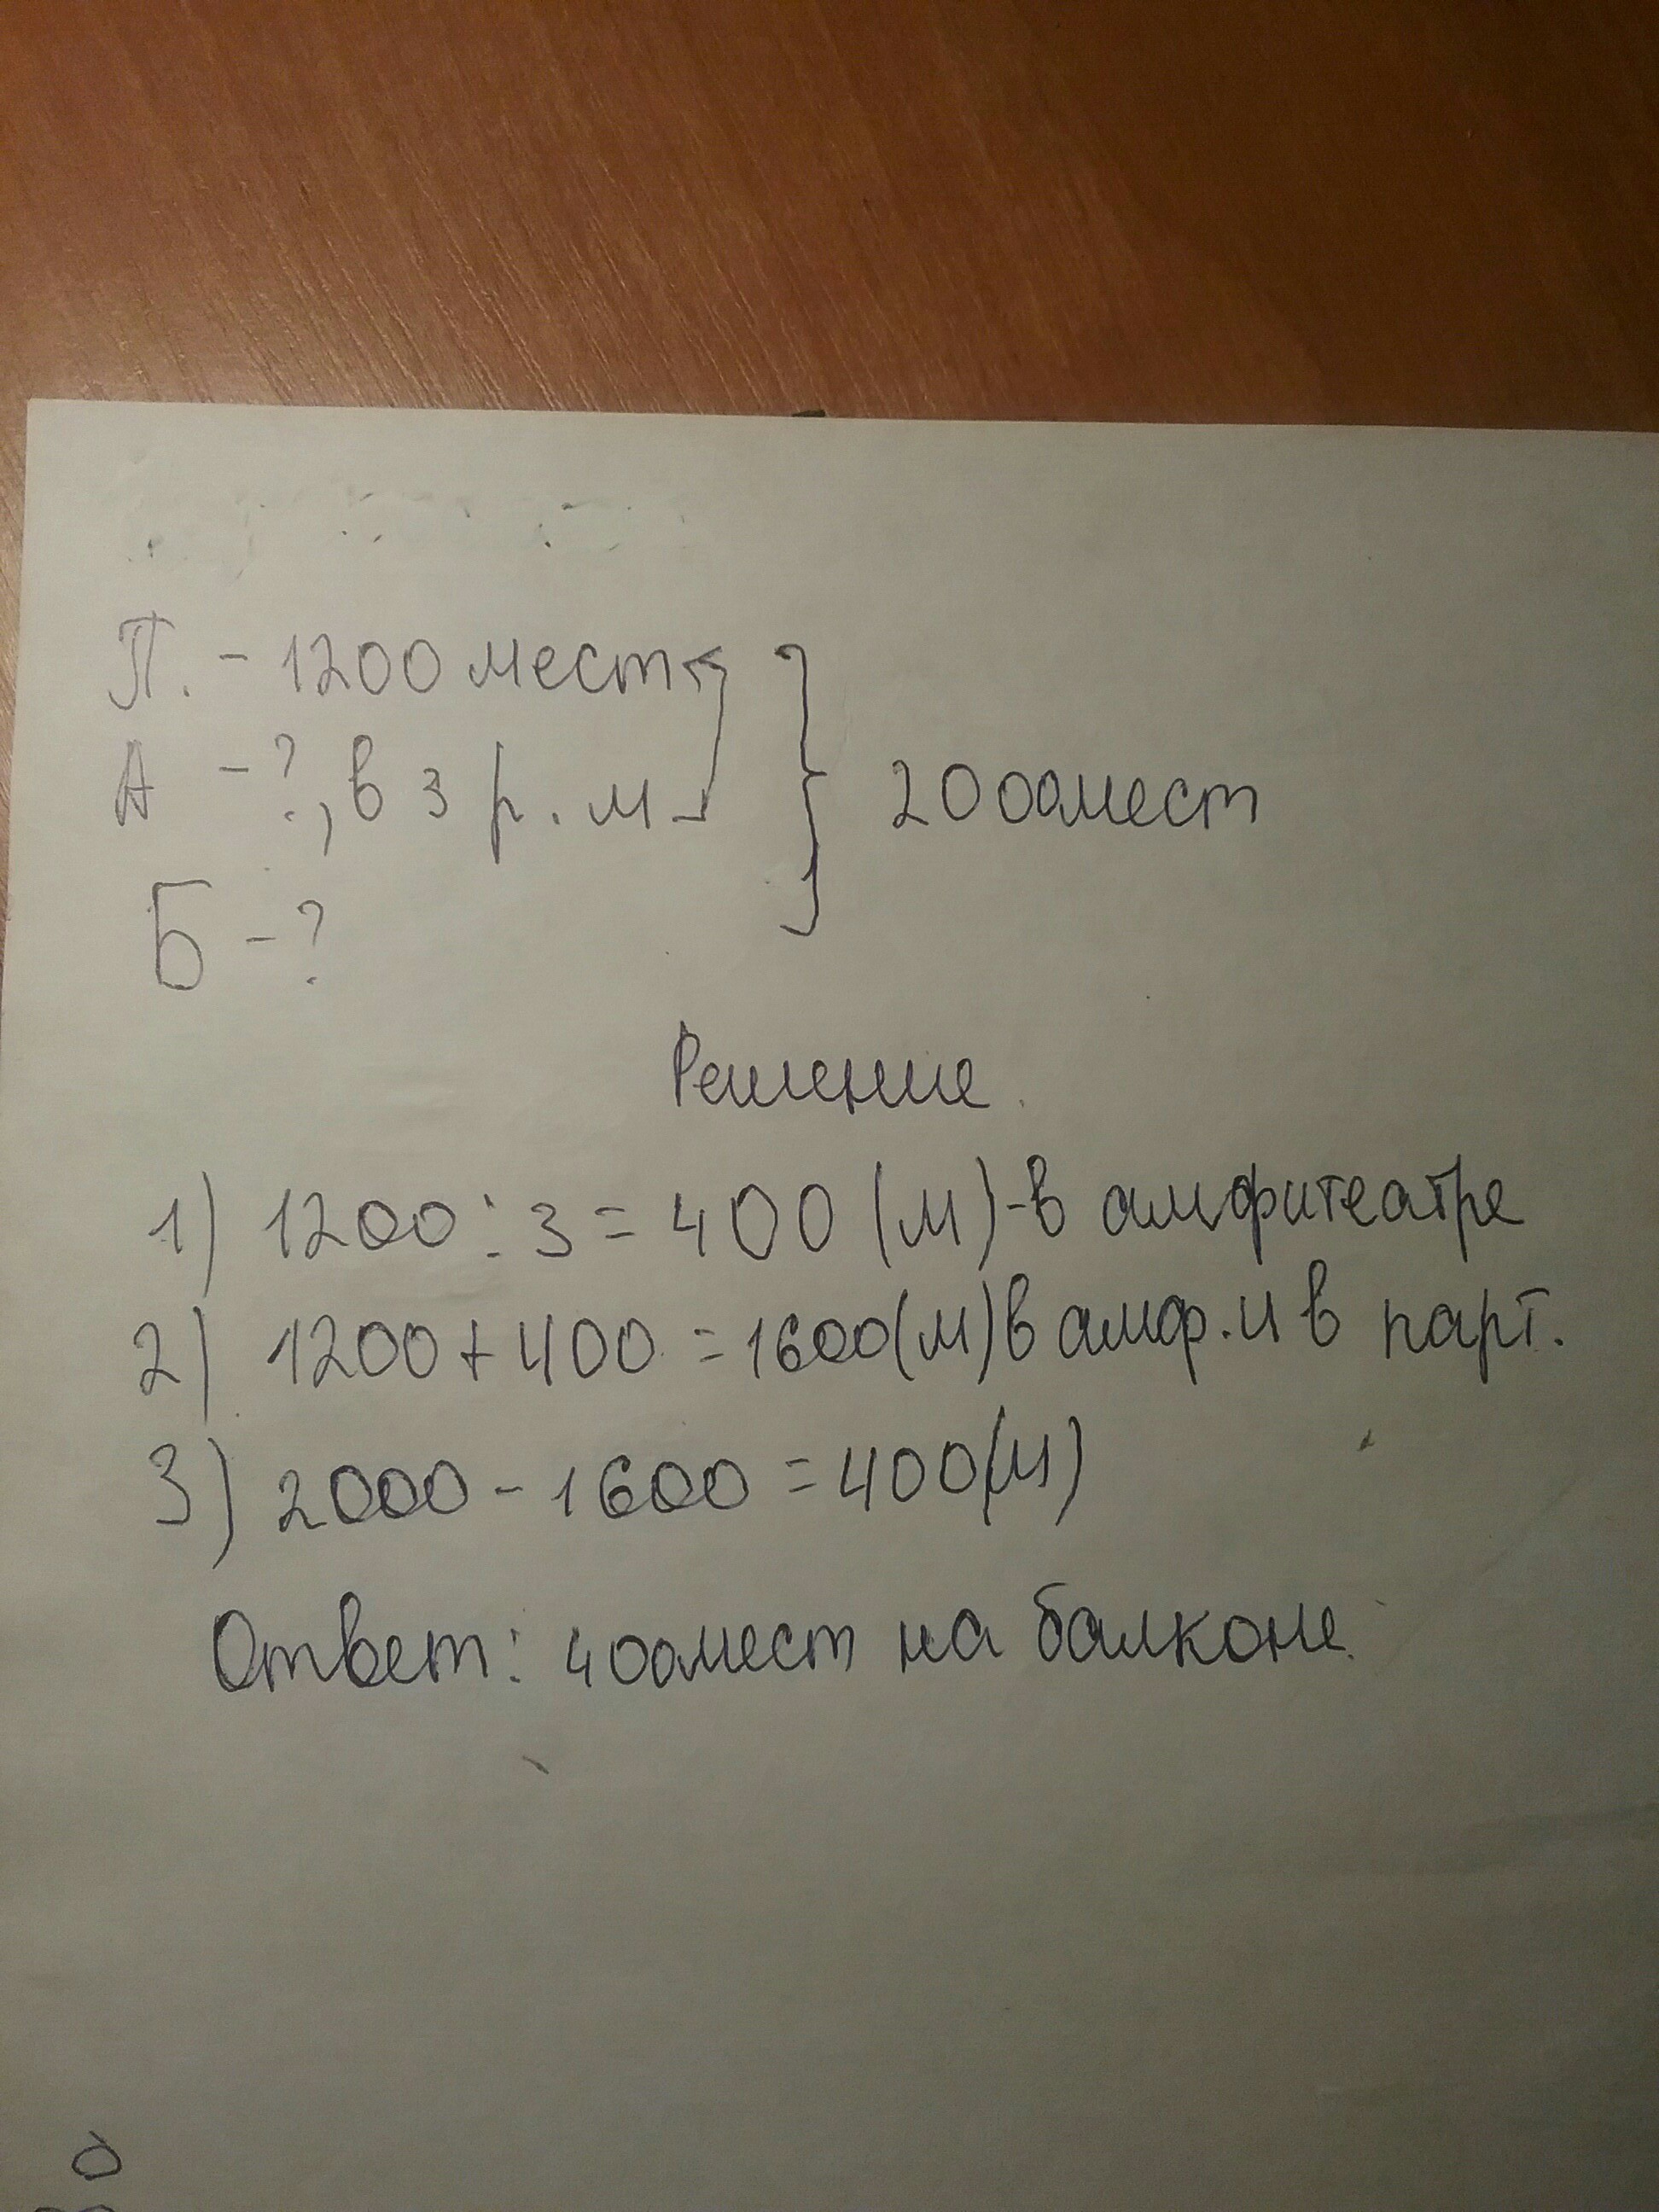 П. - 1200 мест
А - ?, в 3 р. м.
2000 мест
Б - ?
Решение.
1) 1200 : 3 = 400 (м) - в амфитеатре
2) 1200 + 400 = 1600 (м) в амф. и в парт.
3) 2000 - 1600 = 400 (м)
Ответ: 400 мест на балконе.